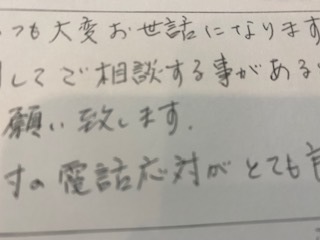 つも大変お世話になります
してご相談する事がある
願い致します.
すの電話応対がとても